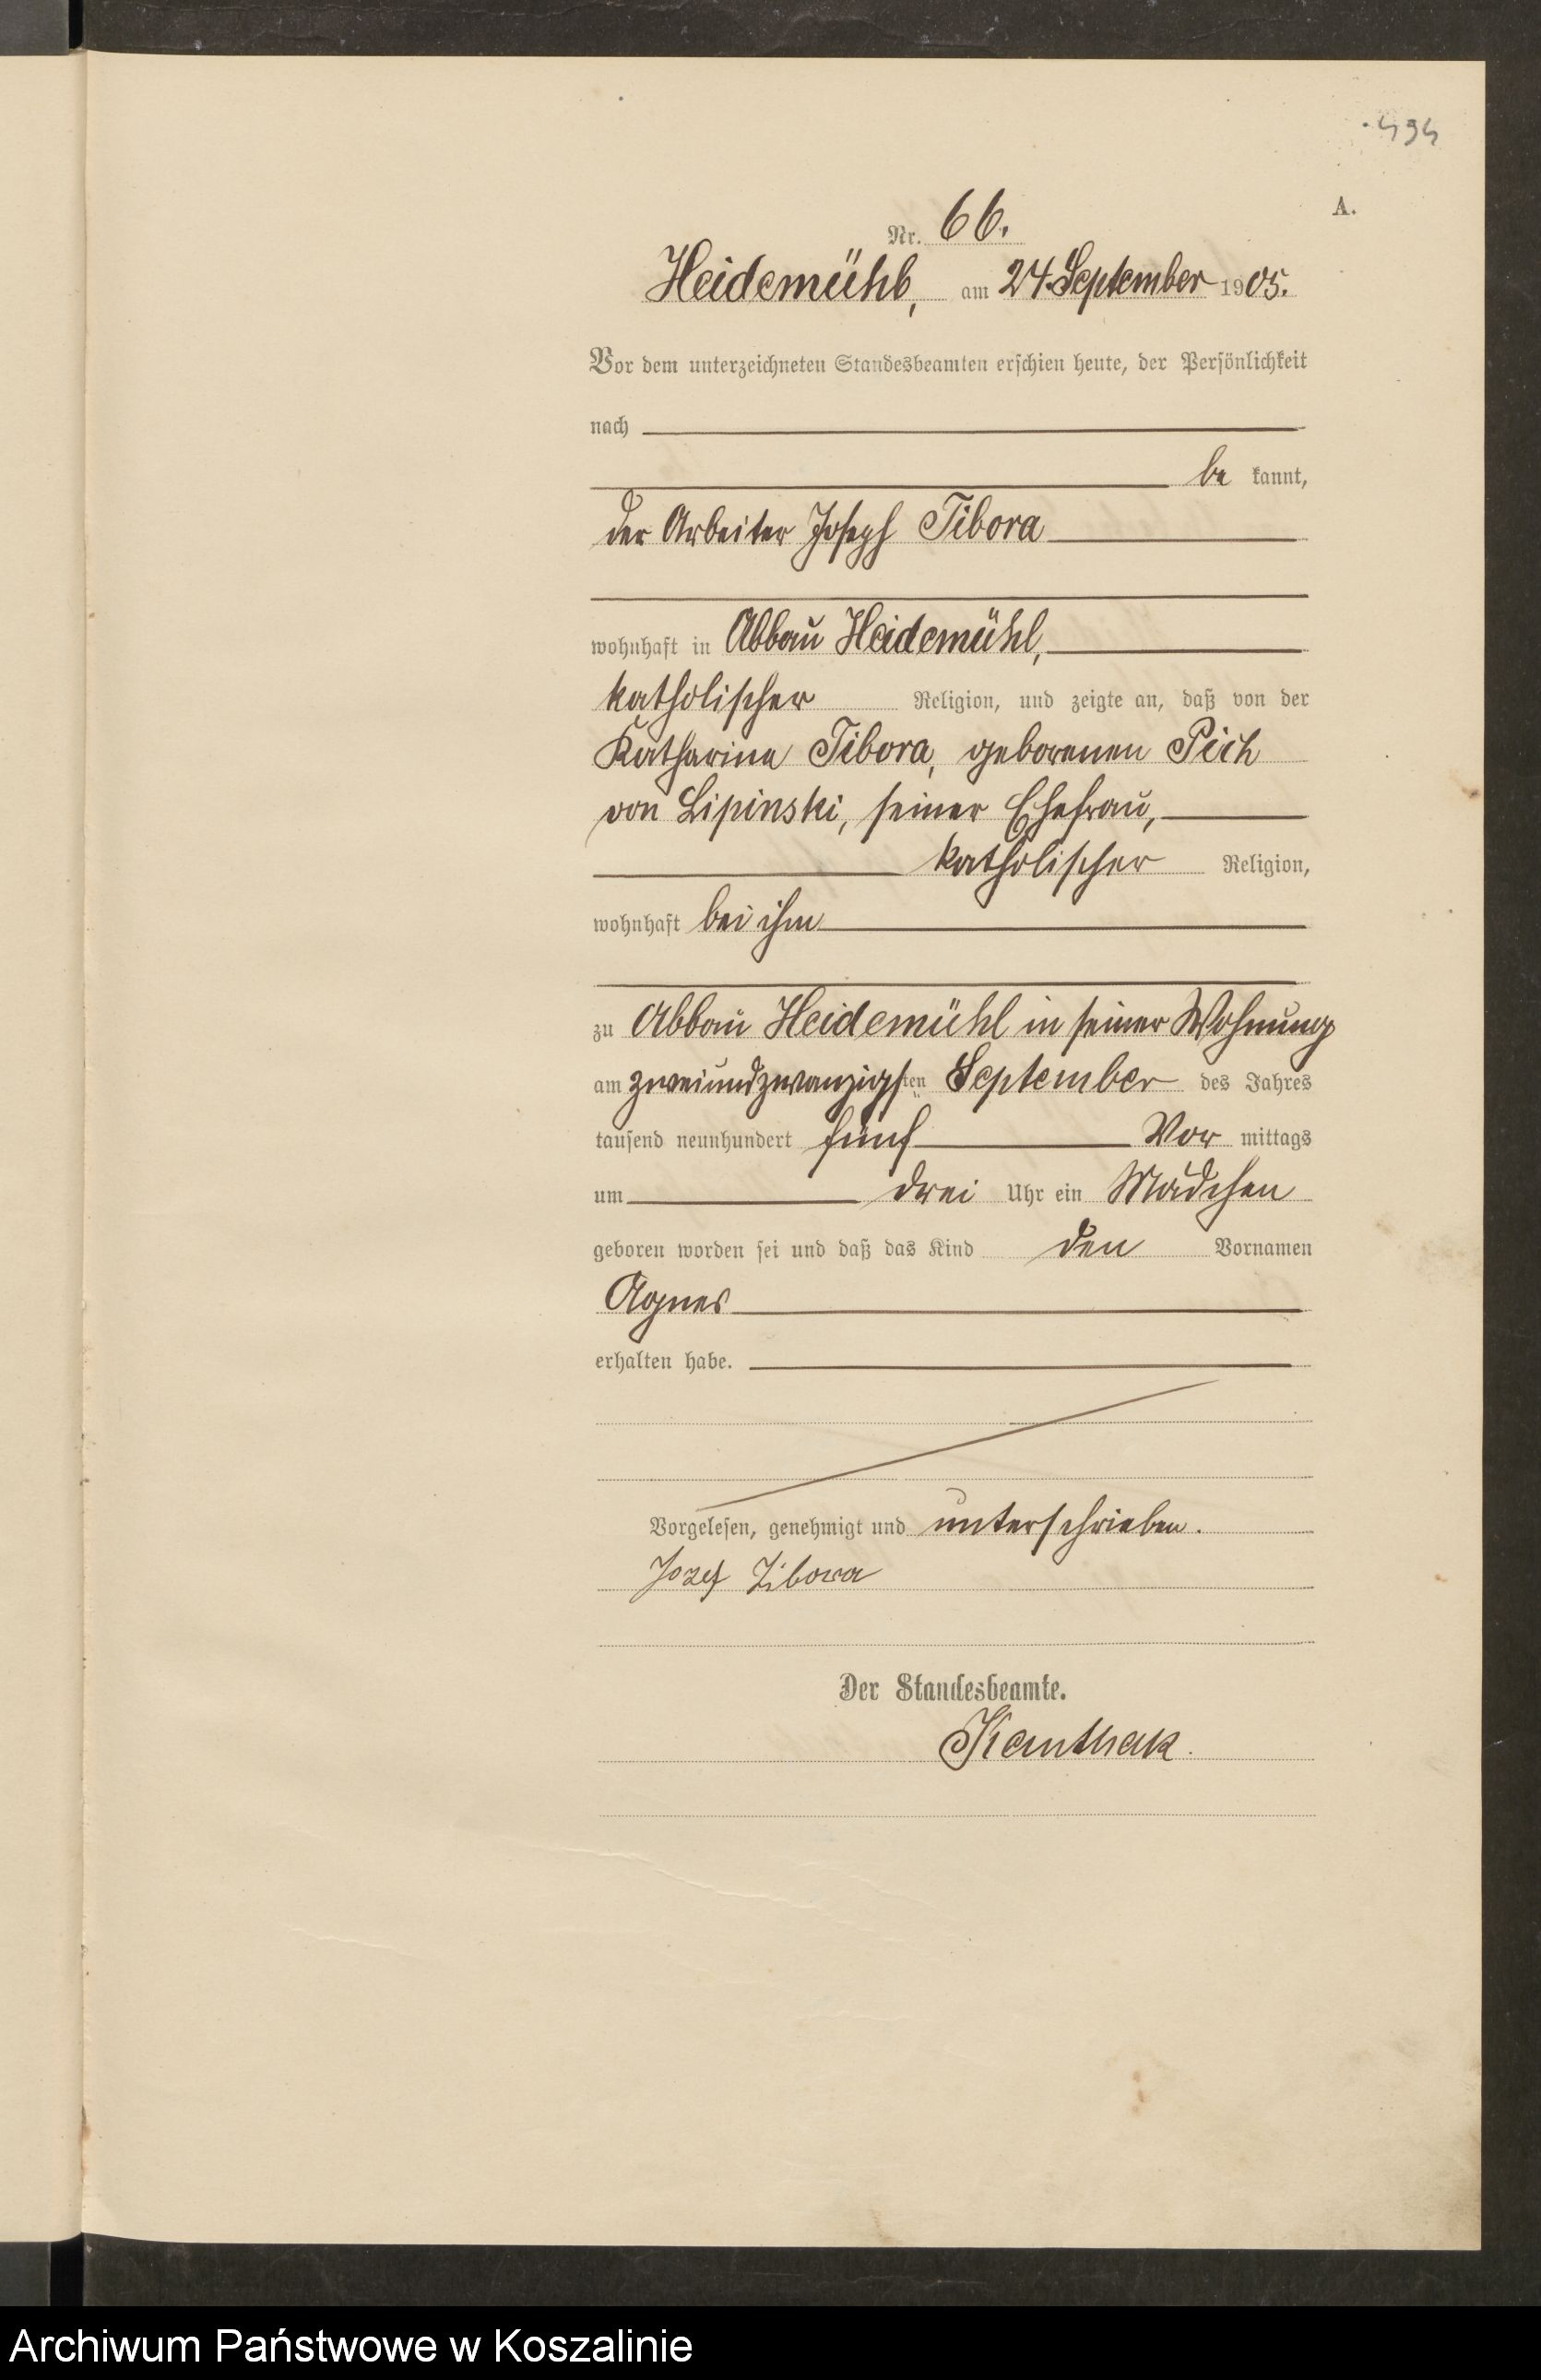 494
A.
Nr. 66.
Heidemühl, am 24. September 1905.
Vor dem unterzeichneten Standesbeamten erschien heute, der Persönlichkeit
nach
be kannt,
der Arbeiter Joseph Tibora
wohnhaft in Abbau Heidemühl,
katholischer Religion, und zeigte an, daß von der
Katharina Tibora, geborenen Pich
von Lipinski, seiner Ehefrau,
katholischer Religion,
wohnhaft bei ihm
zu Abbau Heidemühl in seiner Wohnung
am zweiundzwanzigsten September des Jahres
tausend neunhundert fünf Vor mittags
um drei Uhr ein Mädchen
geboren worden sei und daß das Kind den Vornamen
Agnes
erhalten habe.
Vorgelesen, genehmigt und unterschrieben.
Jozef Zibora
Der Standesbeamte.
Kanthak.
Archiwum Państwowe w Koszalinie